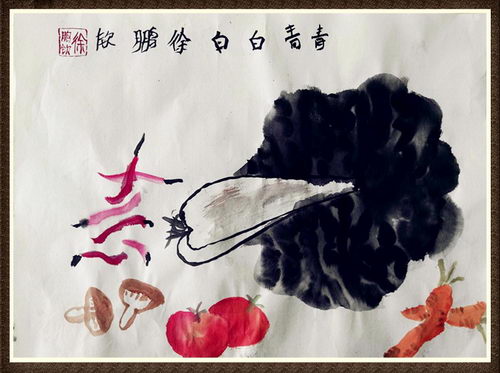 青青白白 徐鹏欣
徐鹏欣